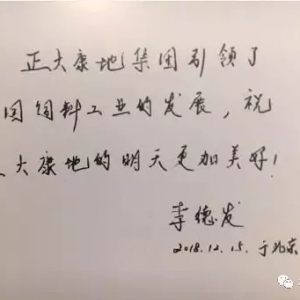 正大康地集团引领了
国饲料工业的发展，祝
大康地的明天更加美好！
李德发
2018.12.15.于北京